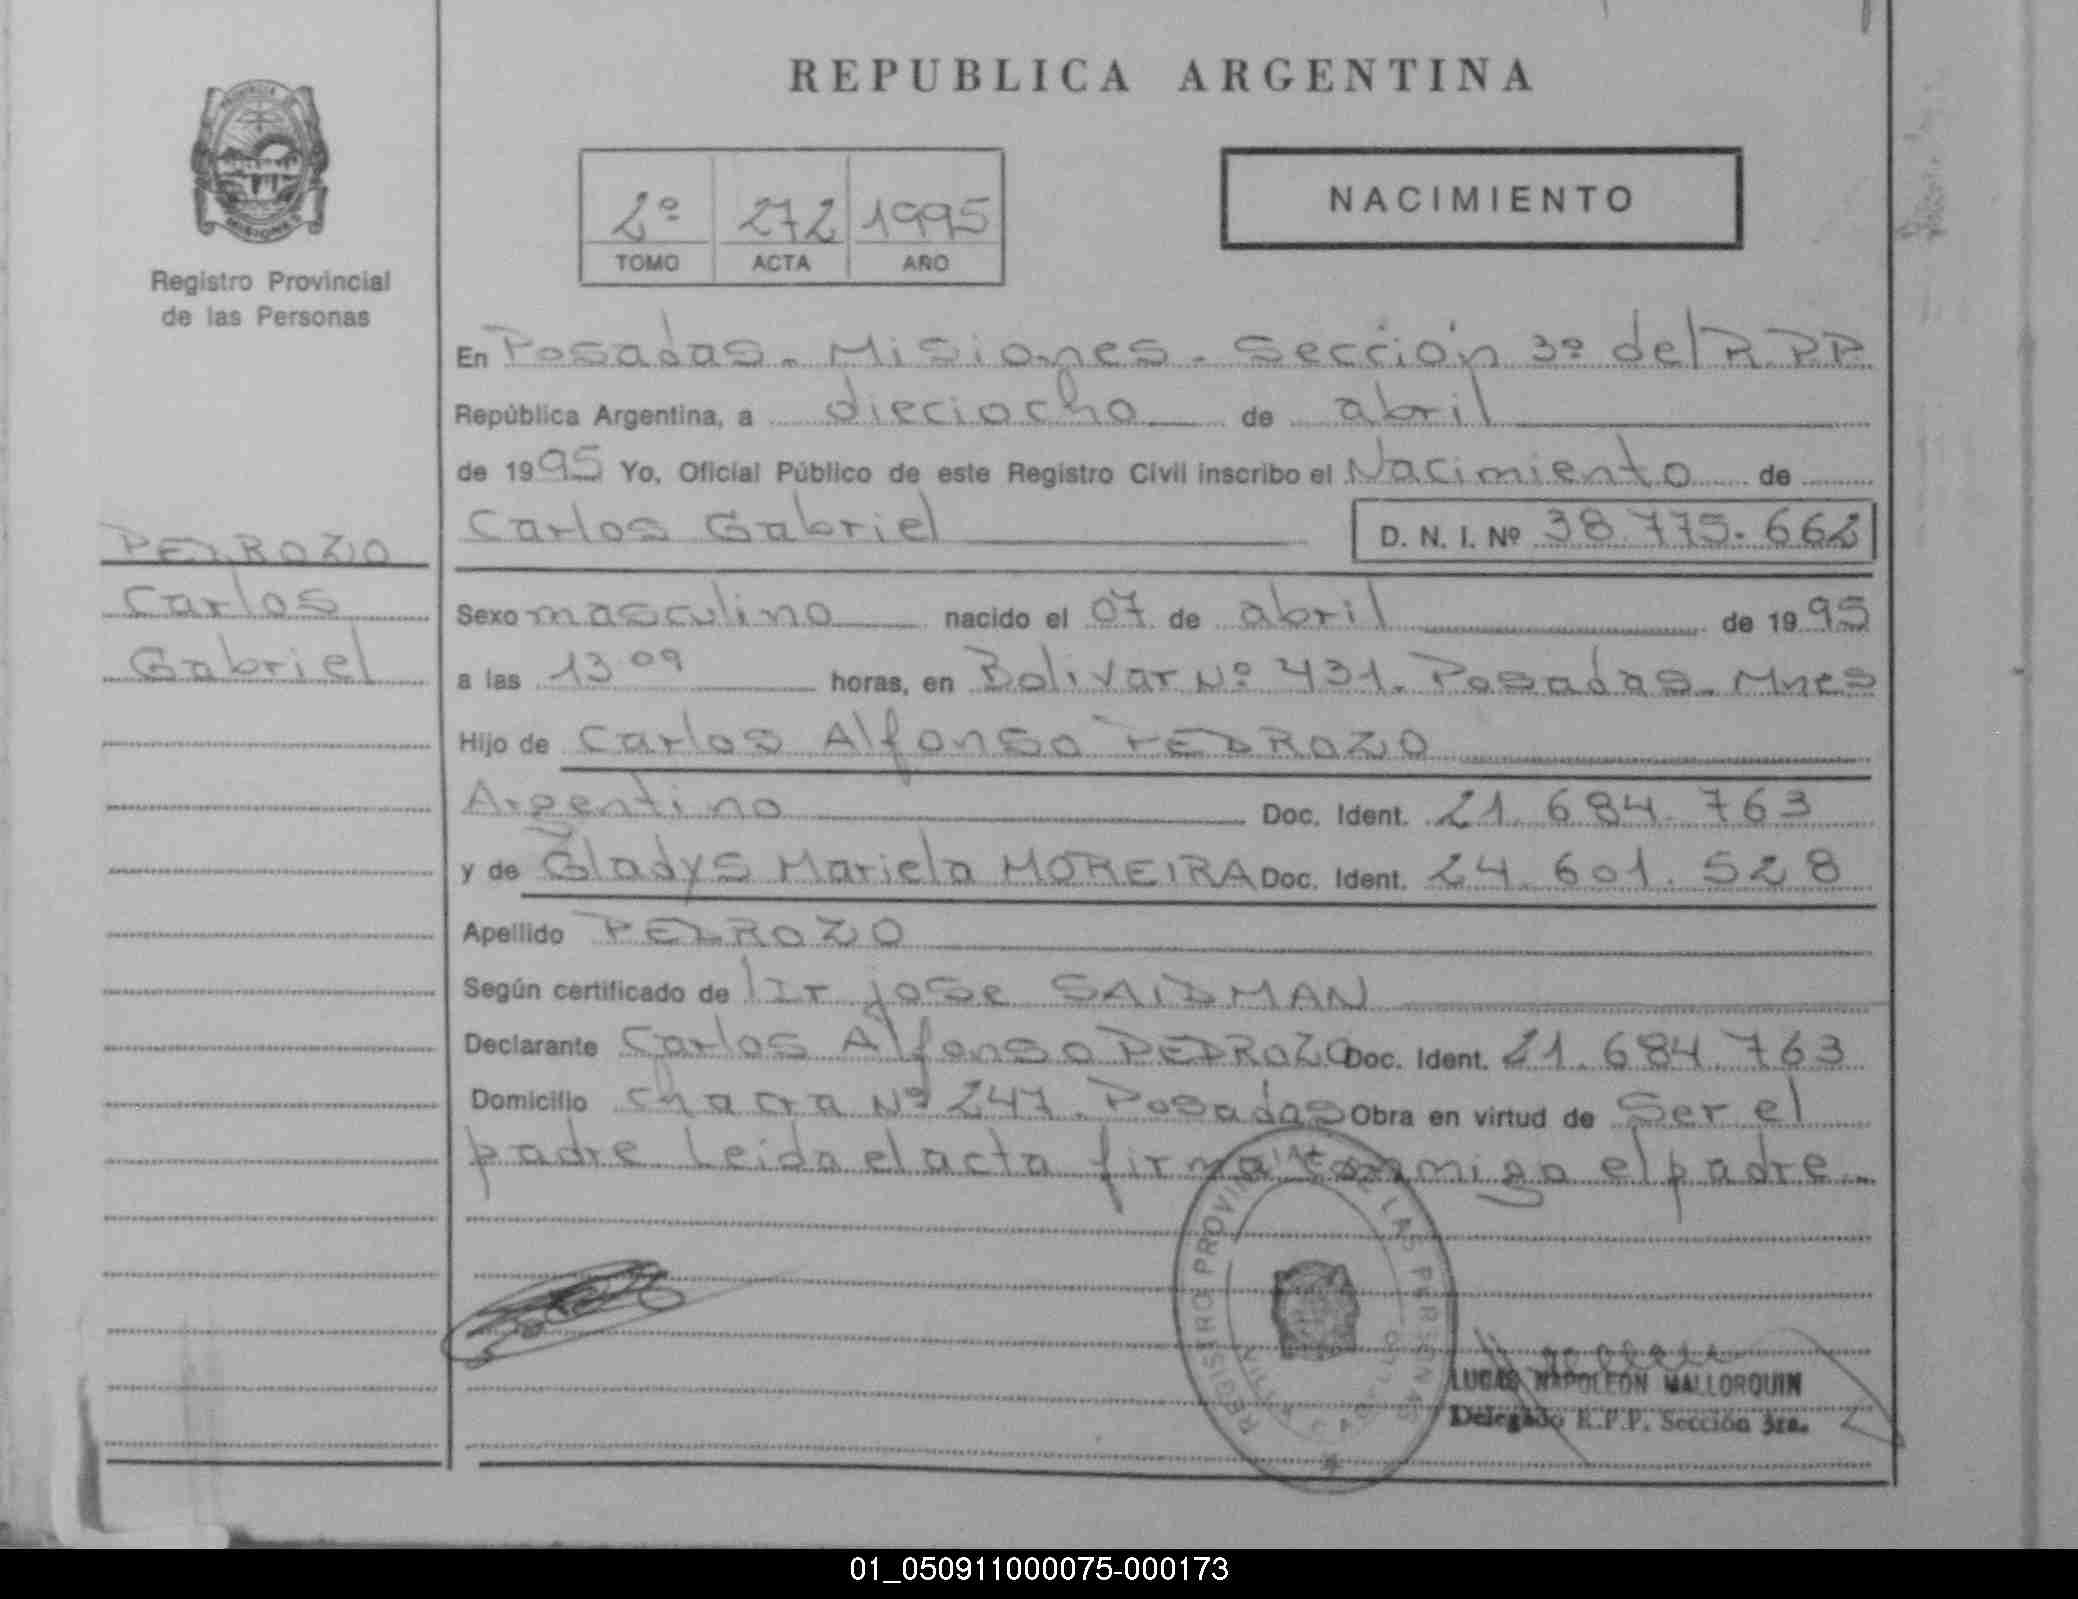 REPUBLICA ARGENTINA
PROVINCIA
MISIONES
Registro Provincial
de las Personas
2º 272 1995
TOMO ACTA AÑO
NACIMIENTO
En Posadas - Misiones - Sección 3º del R.P.P.
República Argentina, a dieciocho de abril
de 1995 Yo, Oficial Público de este Registro Civil inscribo el Nacimiento de
Carlos Gabriel D. N. I. Nº 38.775.662
PEDROZO
Carlos
Gabriel
Sexo masculino nacido el 07 de abril de 1995
a las 13 09 horas, en Bolivar Nº 431. Posadas - Mnes
Hijo de Carlos Alfonso PEDROZO
Argentino Doc. Ident. 21.684.763
y de Gladys Mariela MOREIRA Doc. Ident. 24.601.528
Apellido PEDROZO
Según certificado de Dr jose SAIDMAN
Declarante Carlos Alfonso PEDROZO Doc. Ident. 21.684.763
Domicilio chacra Nº 247. Posadas Obra en virtud de Ser el
padre Leida el acta firma conmigo el padre.
REGISTRO PROVINCIAL DE LAS PERSONAS
LUCAS NAPOLEON MALLORQUIN
Delegado R.P.P. Sección 3ra.
01_050911000075-000173